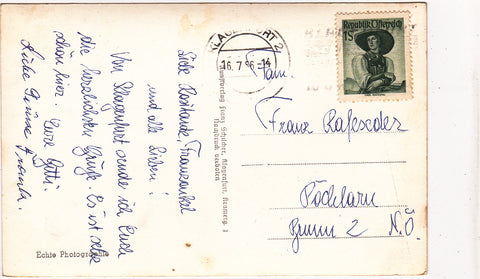 Liebe Rosltante, Franzonkel
und alle Lieben!
Von Klagenfurt sende ich Euch
die herzlichsten Grüße. Es ist sehr
schön hier. Eure Gitti.
Liebe Grüße
Echte Photographie
Kunstverlag Franz Schilcher, Klagenfurt,
Nachdruck verboten
KLAGENFURT 2
16.7.56-14
Republik Österreich
1S
Fam.
Franz Rafeseder
Pöchlarn
Brunn 2 N.Ö.